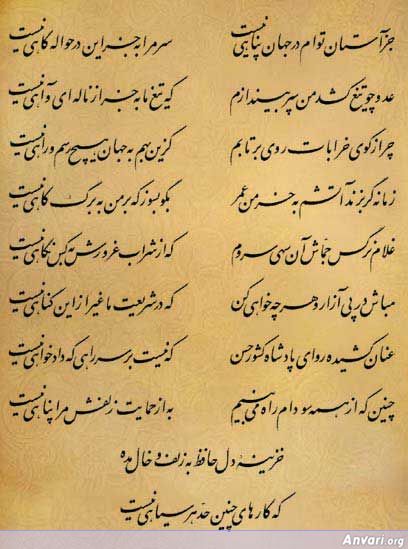 جز آستان توام در جهان پناهی نیست سر مرا به جز این در حواله گاهی نیست
عدو چو تیغ کشد من سپر بیندازم که تیغ ما به جز از ناله ای و آهی نیست
چرا ز کوی خرابات روی برتابم کزین بهم به جهان هیچ رسم و راهی نیست
زمانه گر بزند آتشم به خرمن عمر بگو بسوز که بر من به برگ کاهی نیست
غلام نرگس جماش آن سهی سروم که از شراب غرورش به کس نگاهی نیست
مباش در پی آزار و هر چه خواهی کن که در شریعت ما غیر از این گناهی نیست
عنان کشیده رو ای پادشاه کشور حسن که نیست بر سر راهی که دادخواهی نیست
چنین که از همه سو دام راه می بینم به از حمایت زلفش مرا پناهی نیست
خزینهٔ دل حافظ به زلف و خال مده
که کارهای چنین حد هر سیاهی نیست
Anvari.org